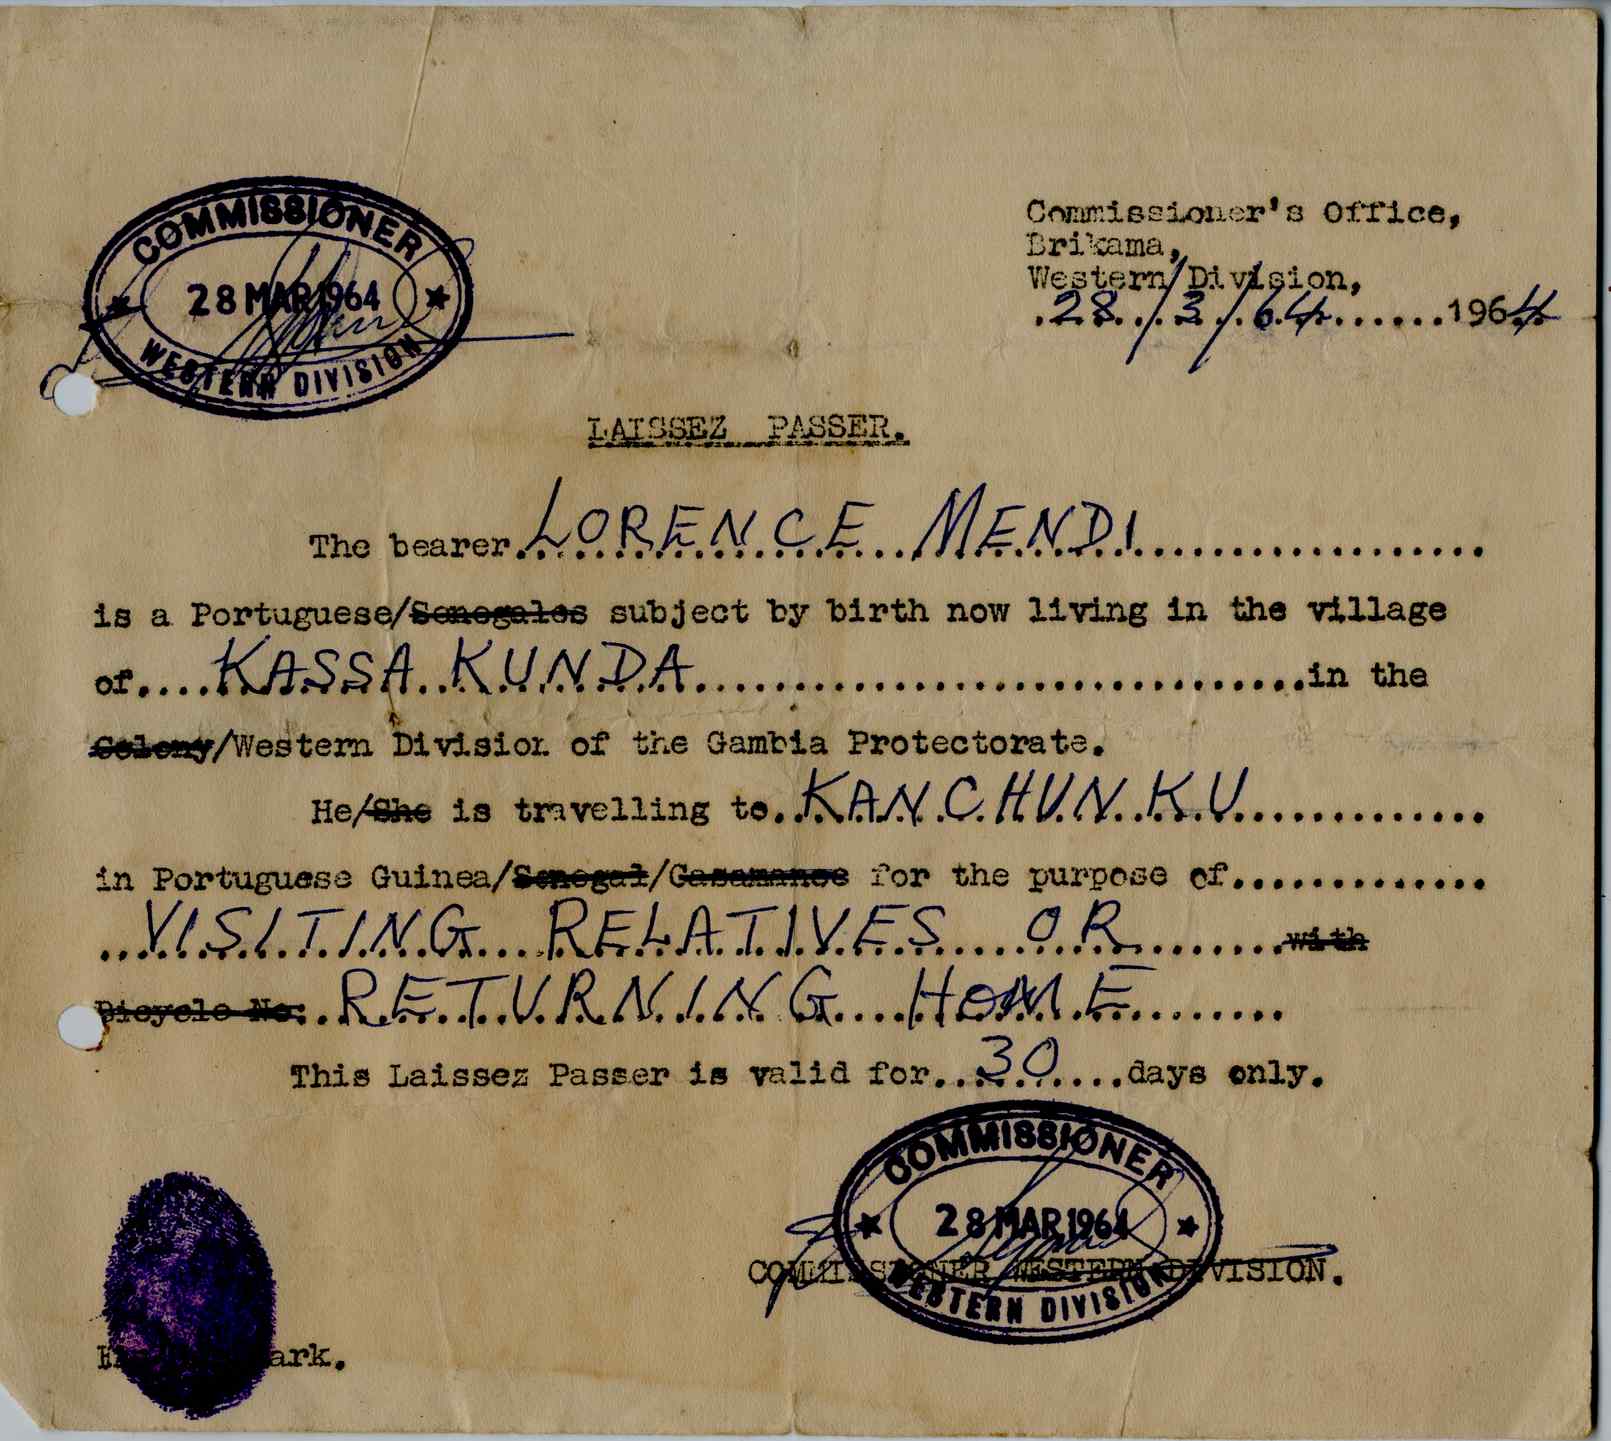 COMMISSIONER
28 MAR 1964
WESTERN DIVISION
Commissioner's Office,
Brikama,
Western Division,
.28../.3./.64.......1964
LAISSEZ PASSER.
The bearer..LORENCE MENDI..................
is a Portuguese/Senegales subject by birth now living in the village
of....KASSA KUNDA..............................in the
Colony/Western Division of the Gambia Protectorate.
He/She is travelling to..KANCHUNKU.............
in Portuguese Guinea/Senegal/Casamance for the purpose of.............
..VISITING RELATIVES OR........with
Bicycle No:..RETURNING HOME........
This Laissez Passer is valid for...30....days only.
COMMISSIONER
28 MAR 1964
WESTERN DIVISION
COMMISSIONER WESTERN DIVISION.